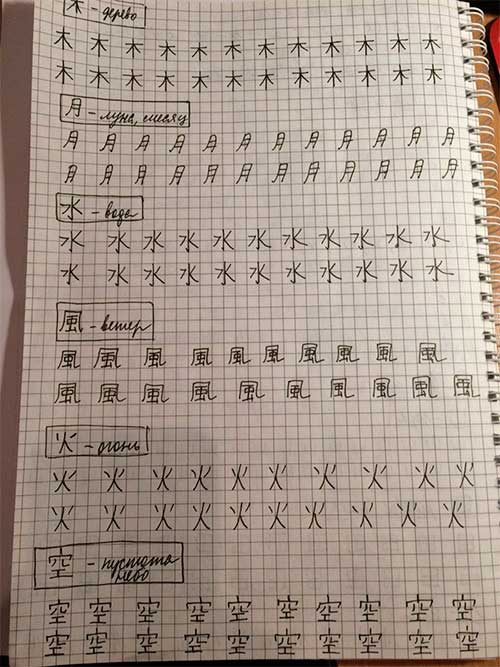 木 - дерево
木 木 木 木 木 木 木 木 木 木 木 木
木 木 木 木 木 木 木 木 木 木 木 木
月 - луна, месяц
月 月 月 月 月 月 月 月 月 月 月 月
月 月 月 月 月 月 月 月 月 月 月 月
水 - вода
水 水 水 水 水 水 水 水 水 水 水
水 水 水 水 水 水 水 水 水 水 水
風 - ветер
風 風 風 風 風 風 風 風 風 風
風 風 風 風 風 風 風 風 風 風
火 - огонь
火 火 火 火 火 火 火 火 火 火
火 火 火 火 火 火 火 火 火 火
空 - пустота
небо
空 空 空 空 空 空 空 空 空 空
空 空 空 空 空 空 空 空 空 空